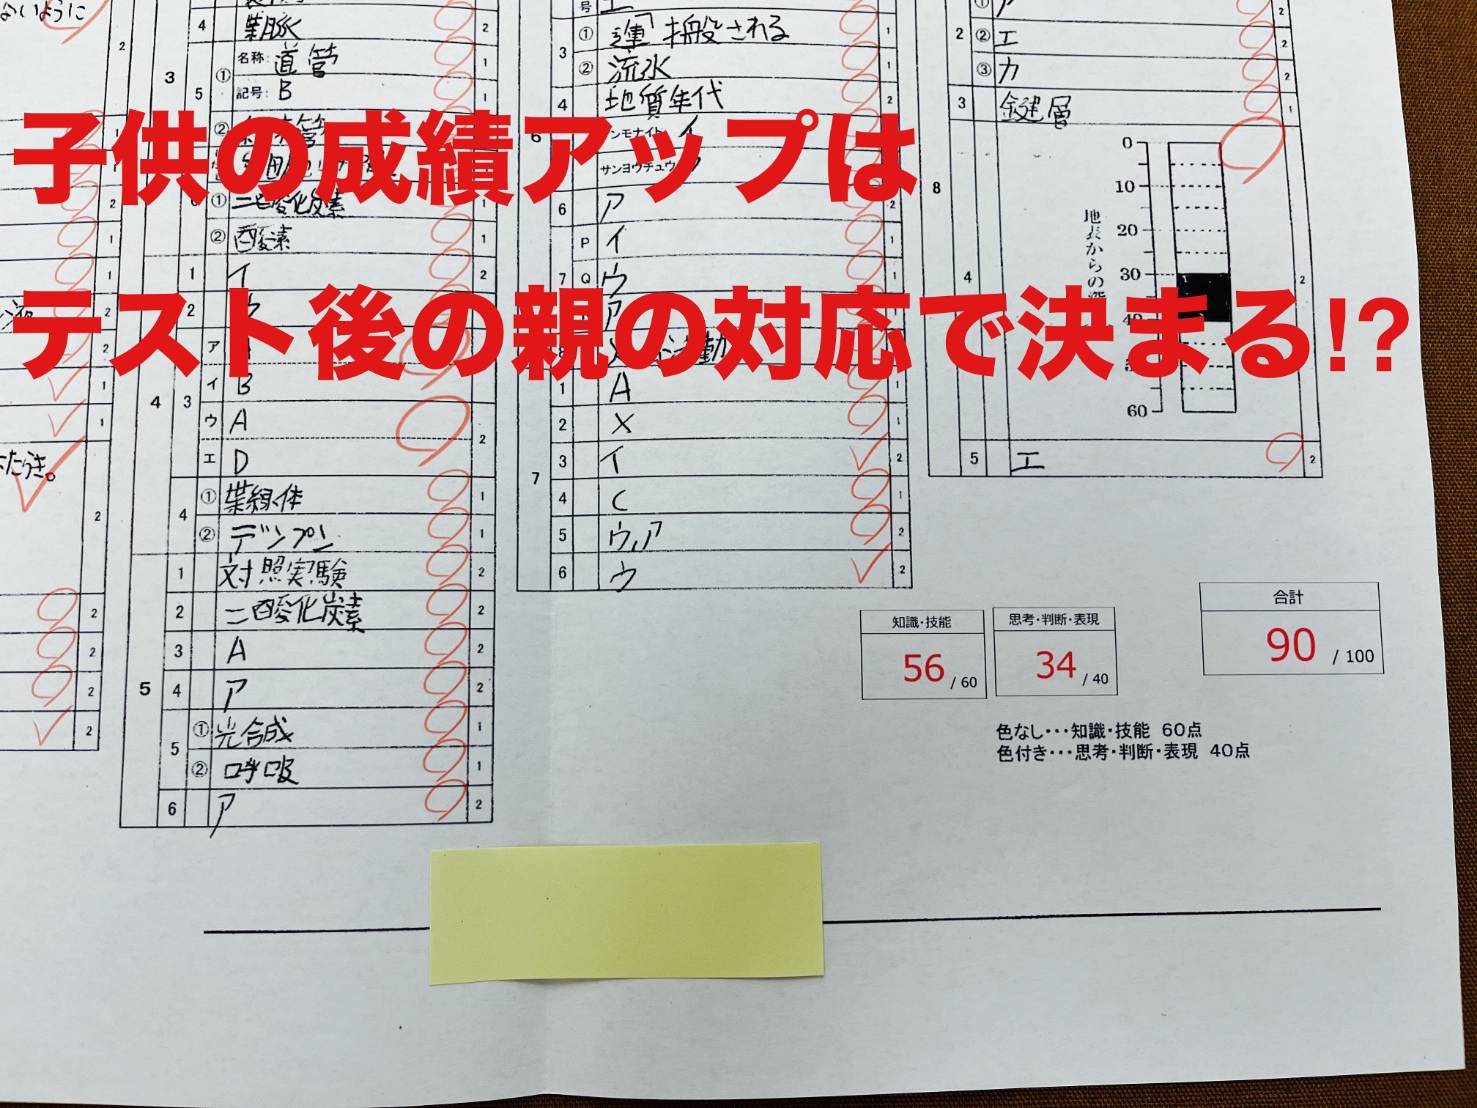 子供の成績アップは
テスト後の親の対応で決まる!?
ないように
2
たらき。
2
2
2
2
2
3
4
葉脈
2
5
①
名称:
道管
1
記号:
B
1
②
①
二酸化炭素
1
②
酸素
1
4
1
イ
2
2
3
ア
イ
B
ウ
A
エ
D
2
4
①
葉緑体
1
②
デンプン
1
5
1
対照実験
2
2
二酸化炭素
2
3
A
2
4
ア
2
5
①
光合成
1
②
呼吸
1
6
ア
2
号
エ
3
①
運搬される
1
②
流水
1
4
地質年代
2
6
アンモナイト
イ
サンヨウチュウ
ア
6
ア
2
7
P
イ
1
Q
ウ
1
ア
7
1
A
1
2
X
1
3
イ
2
4
C
1
5
ウ,ア
2
6
ウ
2
8
2
①
ア
2
②
エ
2
③
カ
2
3
鍵層
1
4
地表からの深
0
10
20
30
40
60
2
5
エ
2
知識・技能
56 / 60
思考・判断・表現
34 / 40
合計
90 / 100
色なし・・・知識・技能 60点
色付き・・・思考・判断・表現 40点